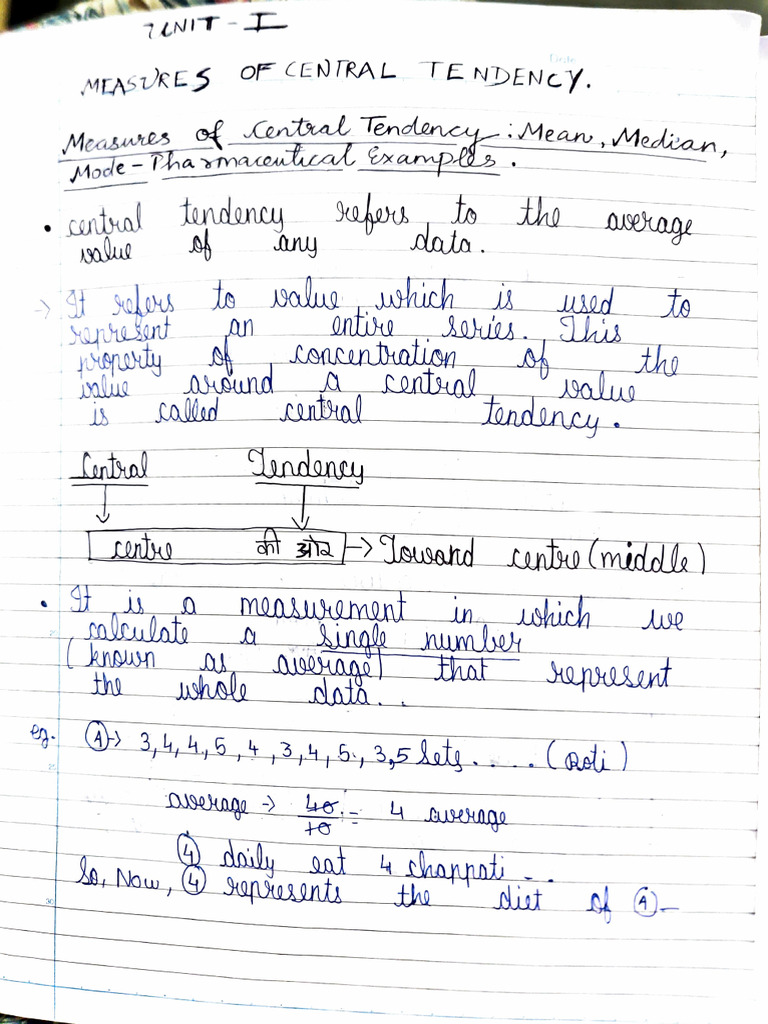 UNIT - I
MEASURES OF CENTRAL TENDENCY.
Measures of Central Tendency : Mean, Median,
Mode - Pharmaceutical Examples.
• central tendency refers to the average
value of any data.
→ It refers to value which is used to
represent an entire series. This
property of concentration of the
value around a central value
is called central tendency.
Central Tendency
centre की ओर → Toward centre (middle)
• It is a measurement in which we
calculate a single number
(known as average) that represent
the whole data..
eg. Ⓐ→ 3,4,4,5,4,3,4,5,3,5 Sets..... (Roti)
average → 40/10 = 4 average
④ daily eat 4 chappati - ..
So, Now, ④ represents the diet of Ⓐ -